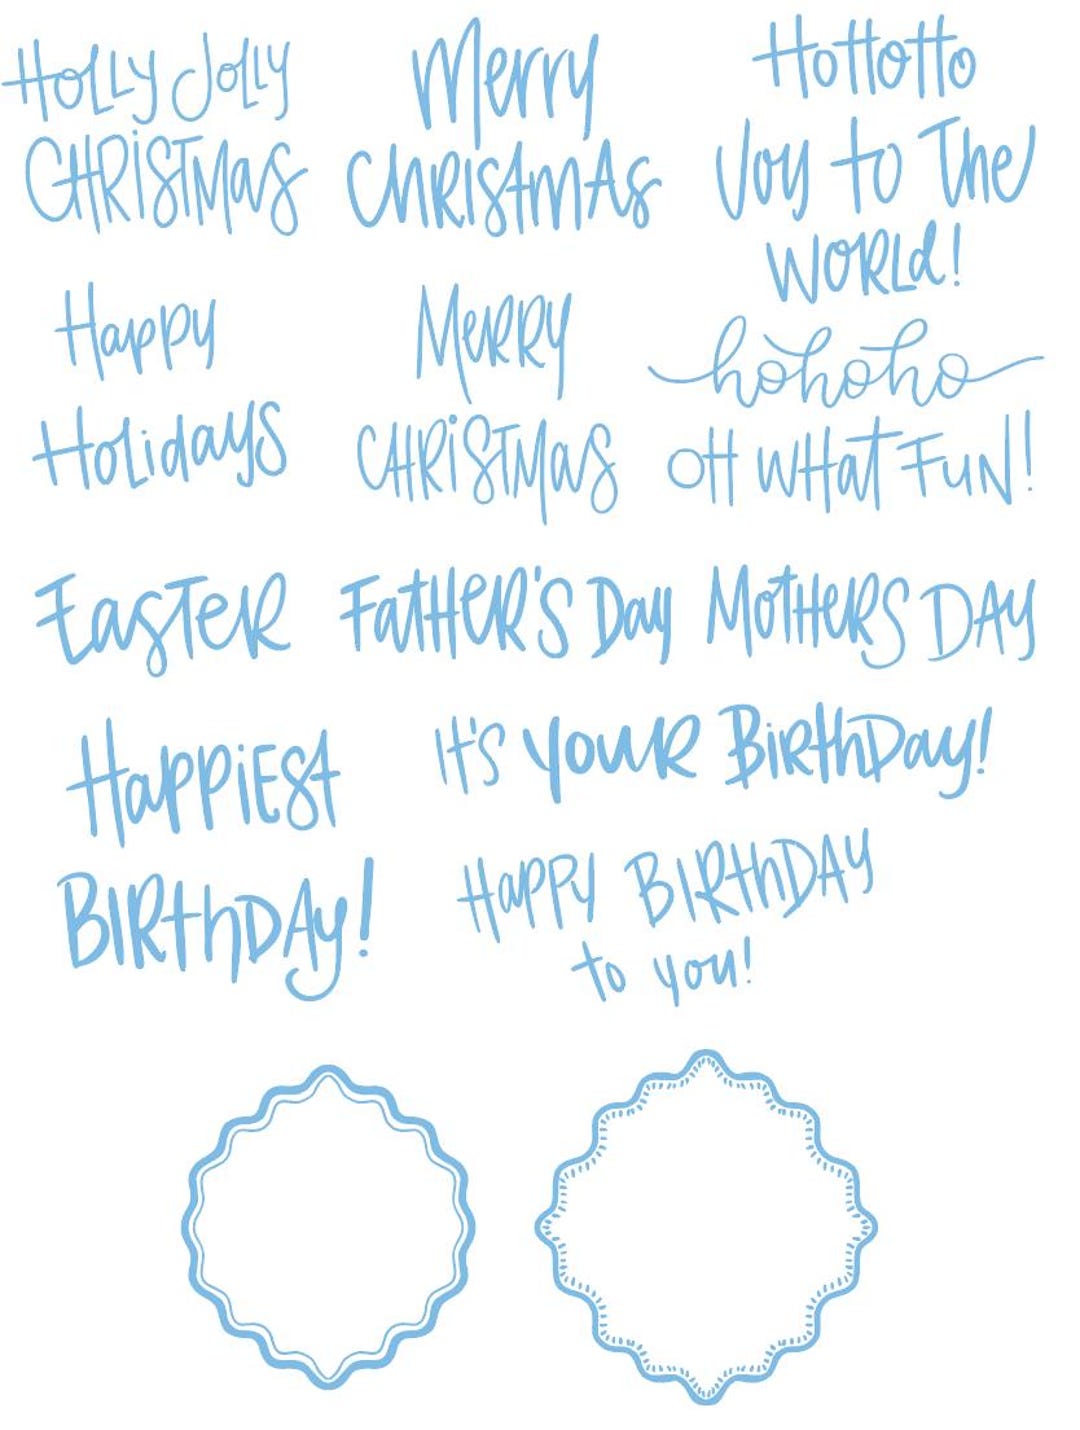 Holly Jolly
CHRiSTMas
Merry
ChRIStmAs
Hottotto
Joy to The
WORLd!
Happy
Holidays
MeRRY
CHRiSTMaS
hohoho
OH WHaT FUN!
EasTeR
FatHER'S Day
MotHeRS DAY
HaPPiESt
BIRthDAy!
It's youR BiRthDay!
HaPPY BIRthDAY
to you!